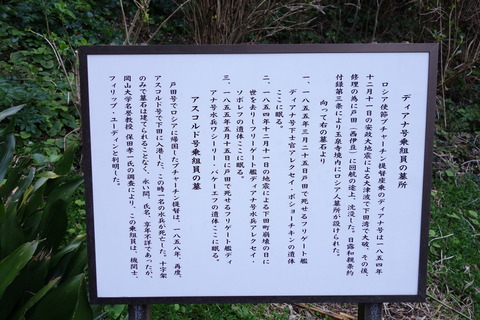 ディアナ号乗組員の墓所
ロシア使節プチャーチン提督座乗のディアナ号は一八五四年
十二月十一日の安政大地震による大津波で下田港で大破、その後、
修理の為に戸田(西伊豆)に回航の途上、沈没した。日露和親条約
付録第三条により玉泉寺境内にロシア人墓所が設けられた。
向って右の墓石より
一、一八五五年三月二五日戸田で死せるフリゲート艦
ディアナ号下士官アレクセイ・ポショーチキンの遺体
ここに眠る
二、一八五四年十二月十一日の地震による下田町崩壊の日に
世を去りしフリーゲート艦ディアナ号水兵アレクセイ・
ソボレフの遺体ここに眠る。
三、一八五五年五月十五日に戸田で死せるフリゲート艦ディ
アナ号水兵ワシーリー・バケーエフの遺体ここに眠る。
アスコルド号乗組員の墓
戸田号でロシアに帰国したプチャーチン提督は、一八五八年、再度、
アスコルド号で下田に入港した。この時一名の水兵が死亡した。十字架
のみで墓石は建てられることなく、永い間、氏名、享年不詳であったが、
岡山大学名誉教授 保田孝一氏の調査により、この乗組員は、機関士、
フィリップ・ユーディンと判明した。